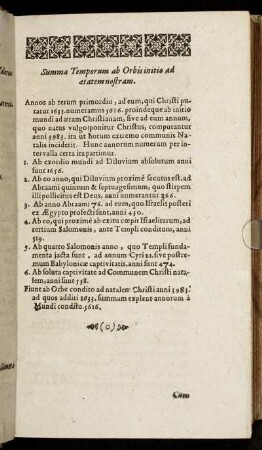 Summa Temporum ab Orbis initio ad
ætatem nostram.
Annos ab rerum primordio, ad eum, qui Christi pu-
tatur 1633. numeramus 5616. proindeque ab initio
mundi ad ætam Christianam, sive ad eum annum,
quo natus vulgo ponitur Christus, computantur
anni 3983. ita ut horum extremo communis Na-
talis inciderit. Hunc annorum numerum per in-
tervalla certa ita partimur.
1. Ab exordio mundi ad Diluvium absolutum anni
sunt 1656.
2. Ab eo anno, qui Diluvium proximè secutus est, ad
Abraami quintum & septuagesimum, quo stirpem
illi pollicitus est Deus, anni numerantur 366.
3. Ab anno Abraami 76. ad eum, quo Israelis posteri
ex Ægypto profecti sunt, anni 430.
4. Ab eo, qui proximè ab exitu cœpit Israëlitarum, ad
tertium Salomonis, ante Templi conditum, anni
519.
5. Ab quarto Salomonis anno, quo Templi funda-
menta jacta sunt, ad annum Cyri 21. sive postre-
mum Babylonicæ captivitatis. anni sunt 474.
6. Ab soluta captivitate ad Communem Christi nata-
lem, anni sunt 538.
Fiunt ab Orbe condito ad natalem Christi anni 3983.
ad quos additi 1633. summam explent annorum à
Mundi conditu. 5616.
(o)
Cum